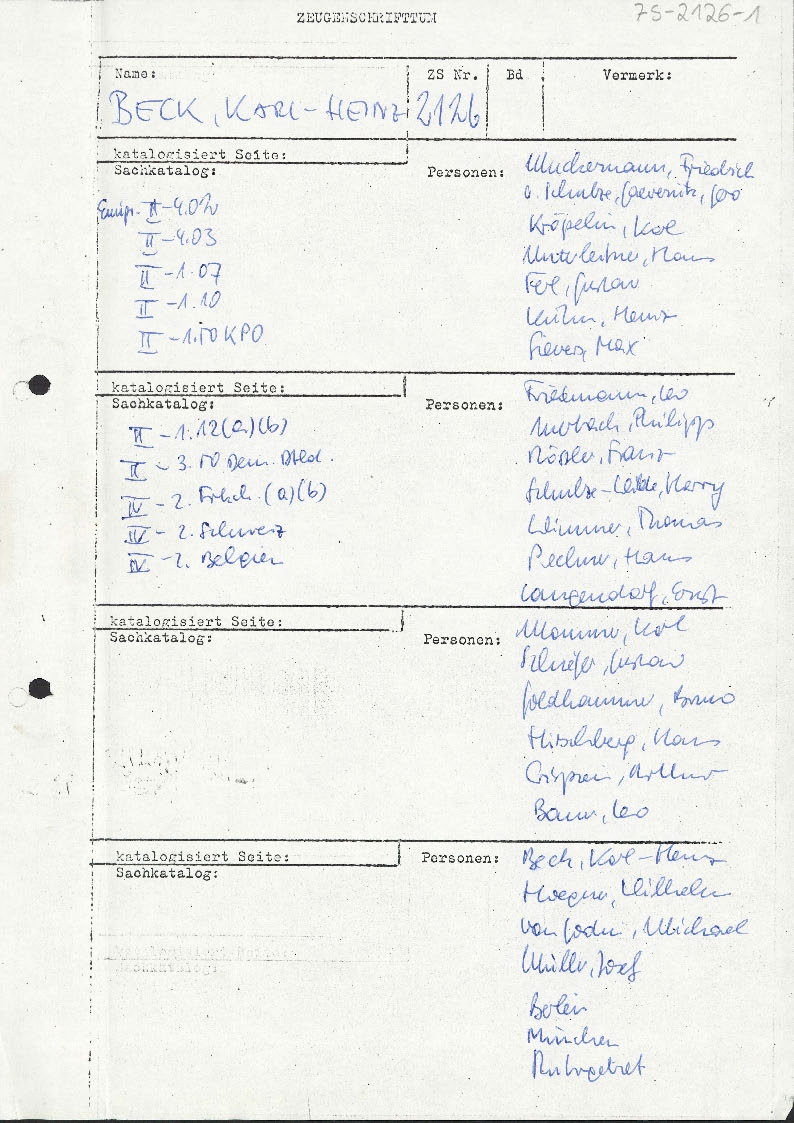 ZEUGENSCHRIFTTUM
ZS-2126-1
Name:
ZS Nr.
Bd
Vermerk:
BECK, KARL-HEINZ
2126
katalogisiert Seite:
Sachkatalog:
Emigr. II-4.02
II-4.03
II-1.07
II-1.10
II-1.10 KPO
Personen:
Muckermann, Friedrich
v. Schulze, Gaevernitz, Gero
Kröpelin, Karl
Unterleitner, Hans
Ferl, Gustav
Kühn, Heinz
Sievers, Max
katalogisiert Seite:
Sachkatalog:
II-1.12(a)(b)
II-3.10 Dem. Dtld.
IV-2. Frkch.(a)(b)
IV-2. Schweiz
IV-2. Belgien
Personen:
Friedmann, Leo
Auerbach, Philipp
Rössler, Franz
Schulze-Wilde, Harry
Wimmer, Thomas
Pechner, Hans
Langendorf, Ernst
katalogisiert Seite:
Sachkatalog:
Personen:
Mommer, Karl
Schiefer, Gustav
Goldhammer, Bruno
Hirschberg, Hans
Crispien, Arthur
Bauer, Leo
katalogisiert Seite:
Sachkatalog:
Personen:
Beck, Karl-Heinz
Hoegner, Wilhelm
von Godin, Michael
Müller, Josef
Berlin
München
Ruhrgebiet